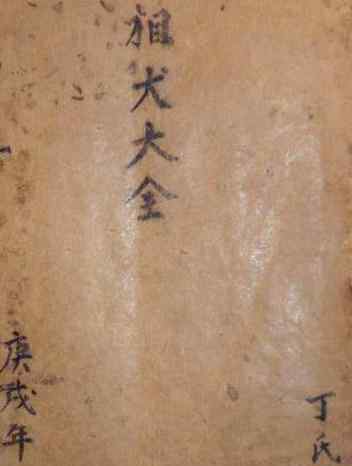 相犬大全
庚戌年
丁氏